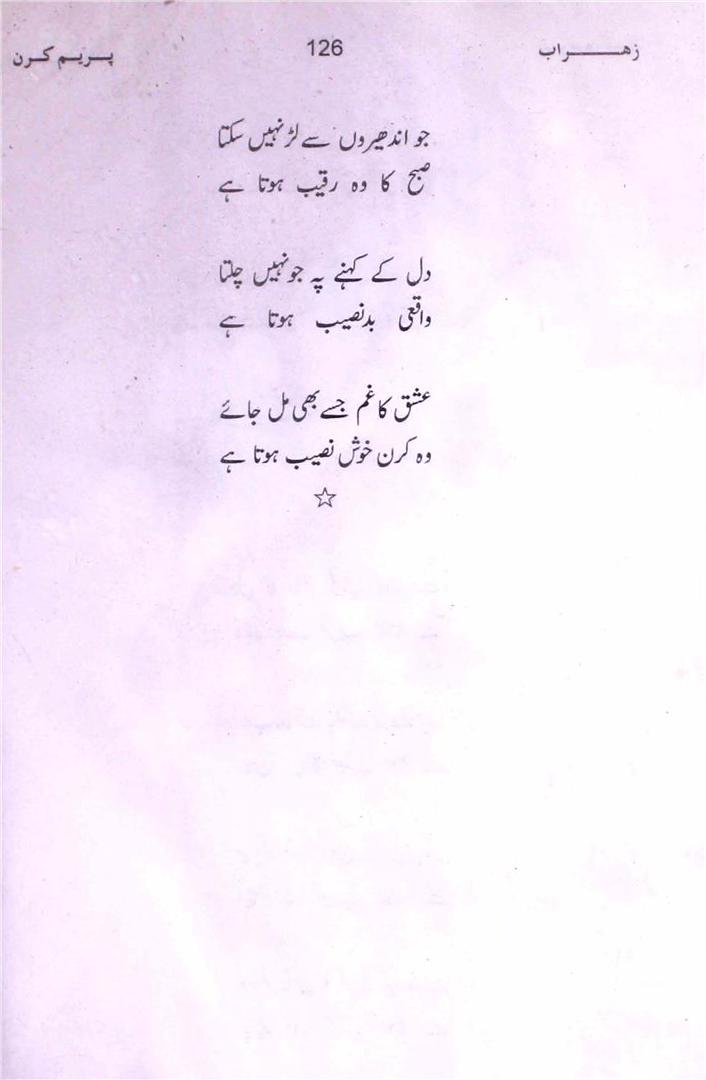 زھراب 126 پریم کرن
جو اندھیروں سے لڑ نہیں سکتا
صبح کا وہ رقیب ہوتا ہے
دل کے کہنے پہ جو نہیں چلتا
واقعی بدنصیب ہوتا ہے
عشق کا غم جسے بھی مل جائے
وہ کرن خوش نصیب ہوتا ہے
☆